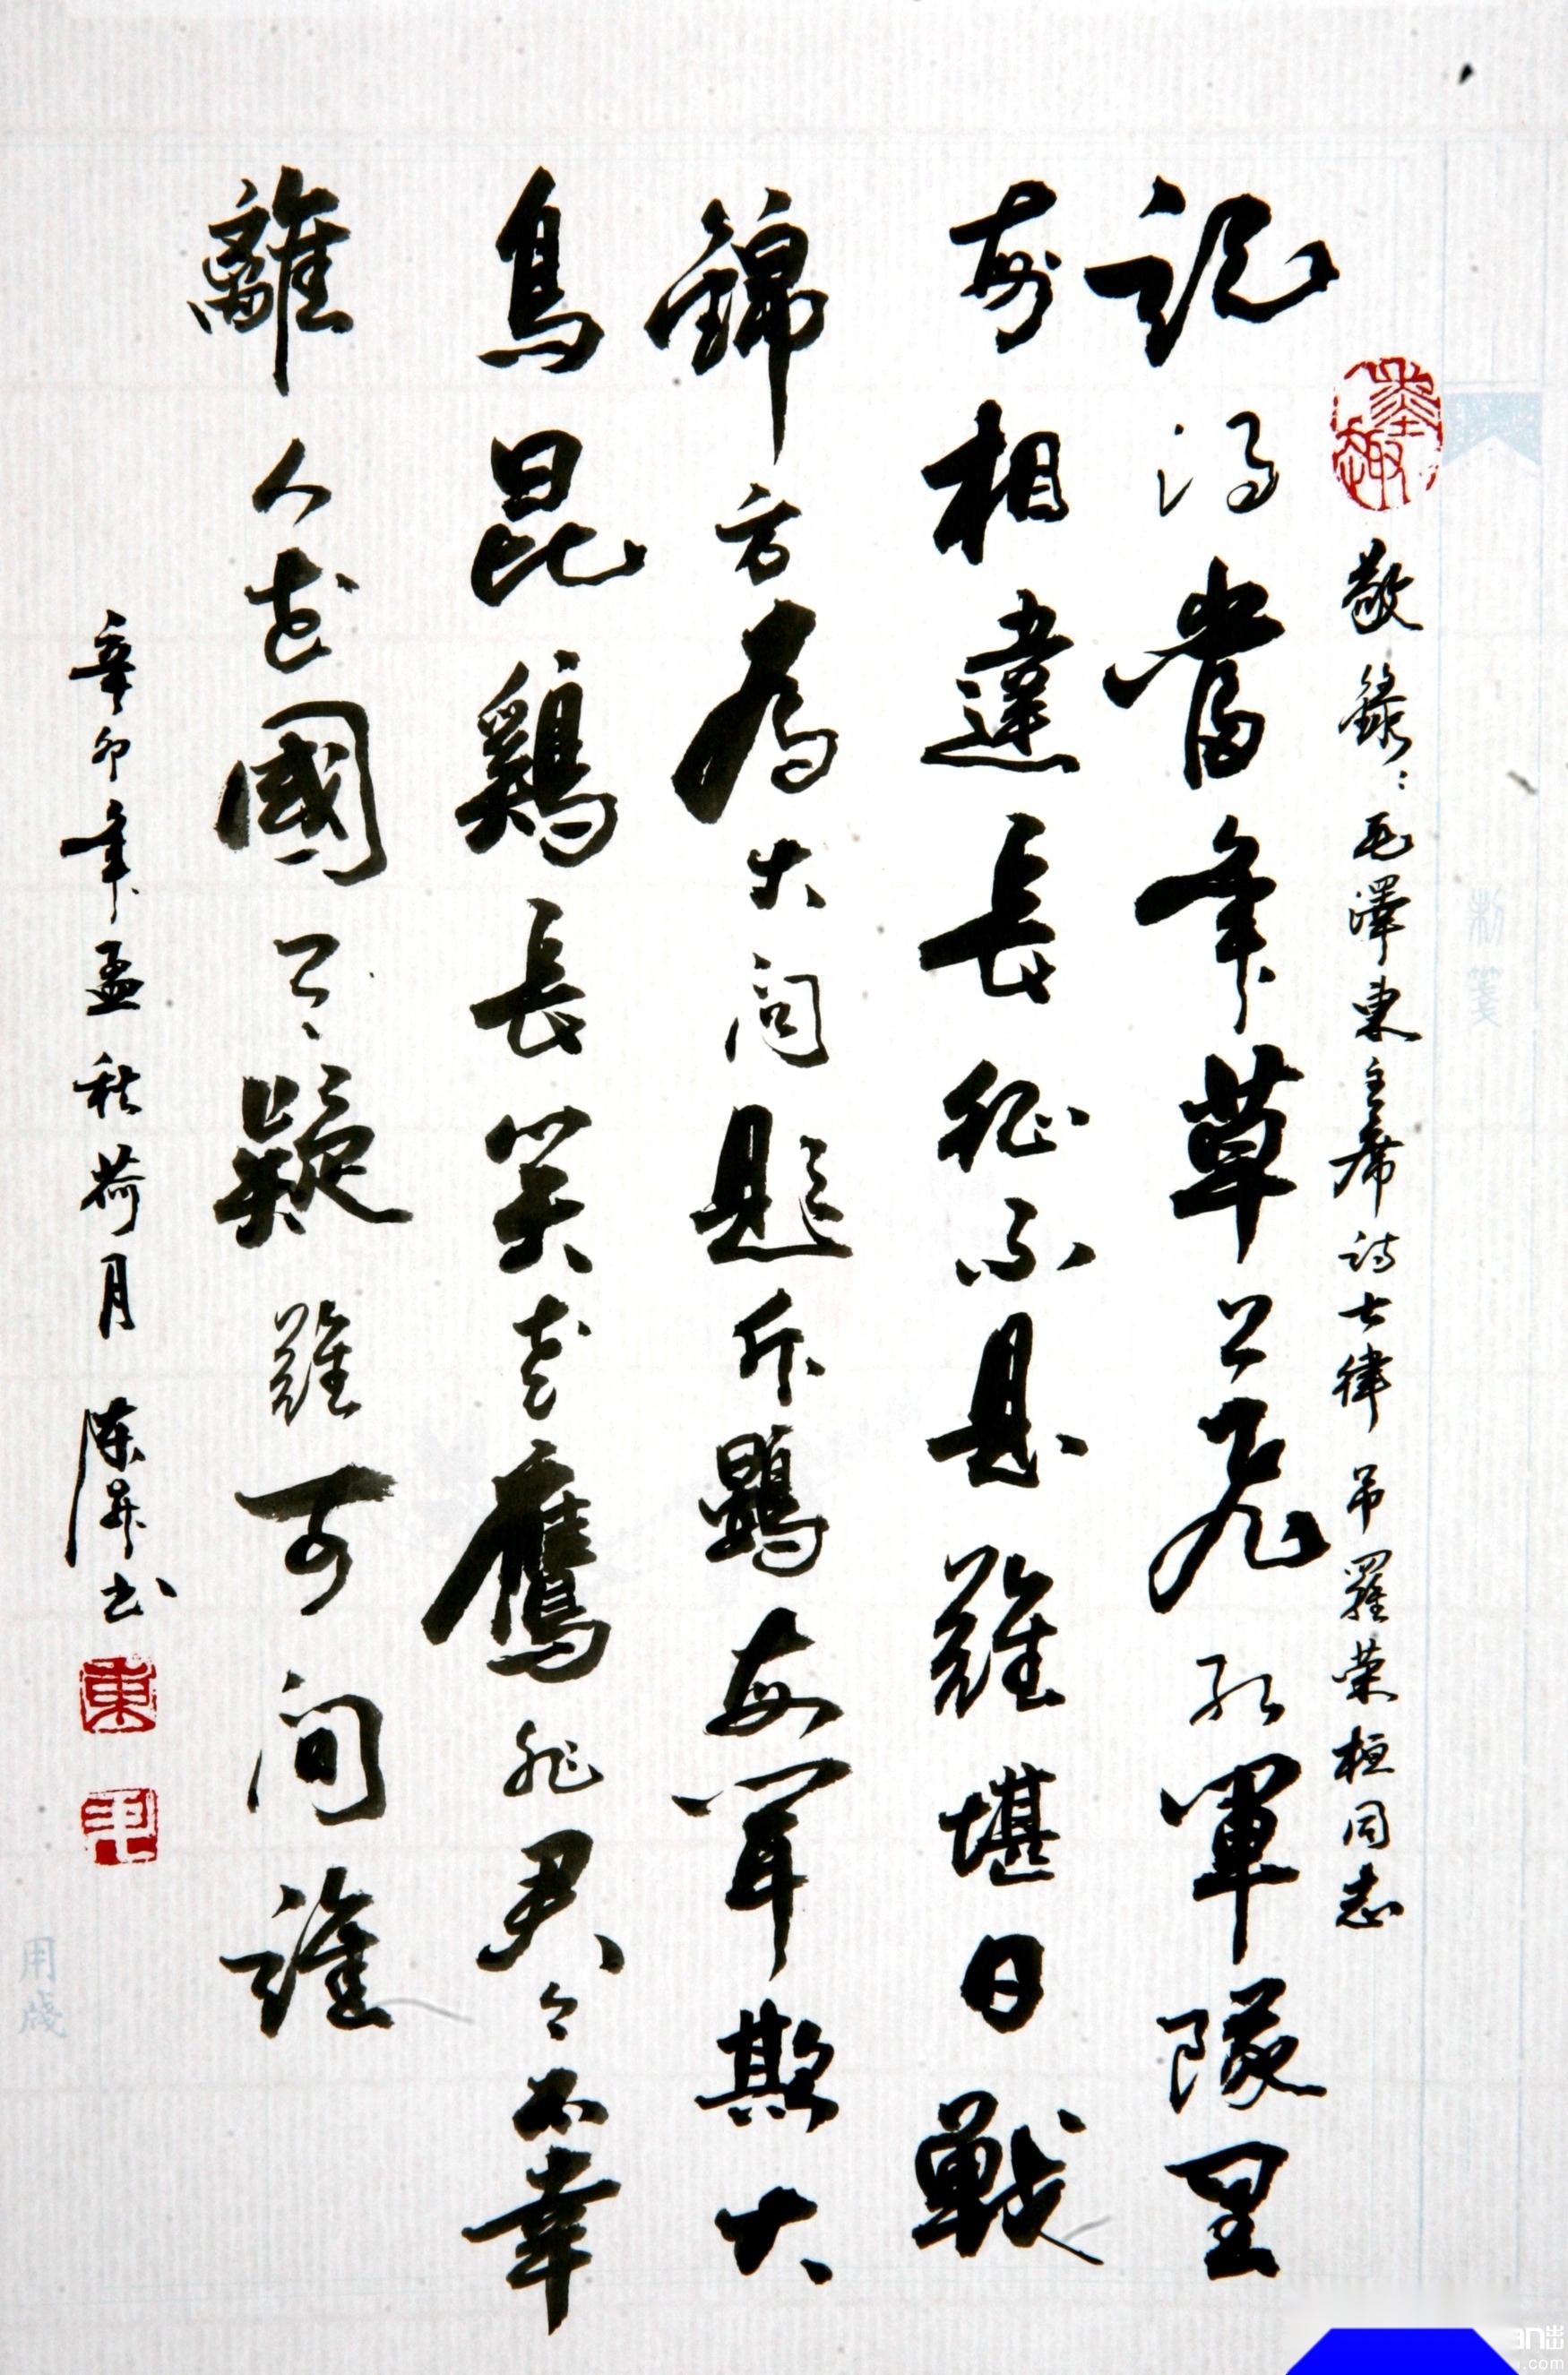 敬錄：毛澤東主席詩七律 吊羅荣桓同志
記得當年草上飛紅軍隊里
每相違長征不是難堪日戰
錦方為大問題斥鷃每闻欺大
鳥昆鷄長笑老鷹非君今不幸
離人世國有疑難可问誰
辛卯年孟秋荷月 陈昇书